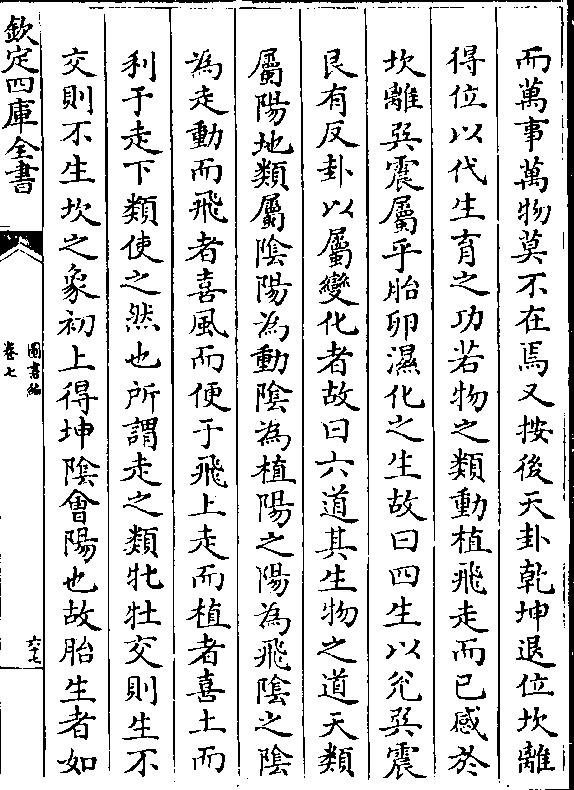 而萬事萬物莫不在焉又按後天卦乾坤退位坎離
得位以代生育之功若物之類動植飛走而已感於
坎離巽震屬乎胎卵濕化之生故曰四生以兊巽震
艮有反卦以屬變化者故曰六道其生物之道天類
屬陽地類屬陰陽為動陰為植陽之陽為飛陰之陰
為走動而飛者喜風而便于飛上走而植者喜土而
利于走下類使之然也所謂走之類牝牡交則生不
交則不生坎之象初上得坤陰會陽也故胎生者如
欽定四庫全書
圖書編
卷七
六十七